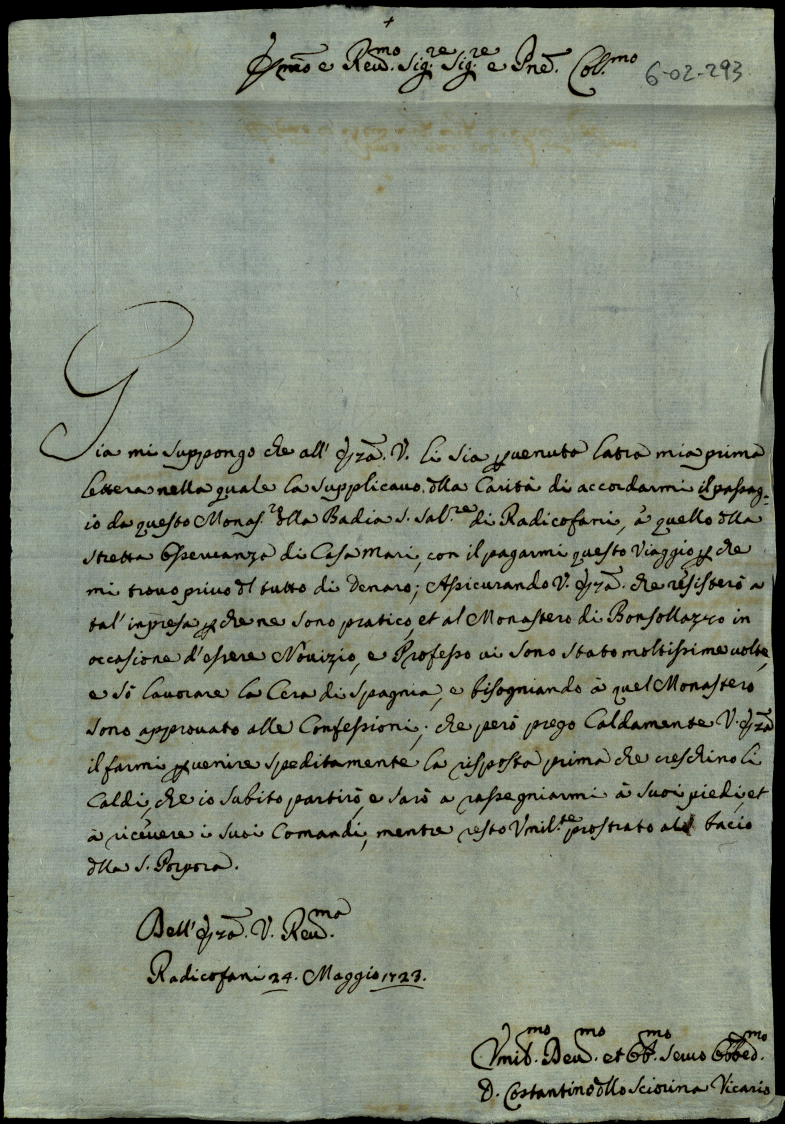 +
Em̃o e Reu.mo Sig.re Sig.re e Pñe. Col.mo 6-02-293
Gia mi suppongo che all' Em̃za. V. li sia puenuta l'atra mia prima
lettera nella quale la supplicauo dlla Carità di accordarmi il passag-
io da questo Monas.ro dlla Badia S. Sal.re di Radicofani, à quello dlla
stretta Osseruanza di Casa Mari, con il pagarmi questo Viaggio p che
mi trouo priuo dl tutto di Denaro; Assicurando V. Em̃za. che resisterò a
tal' inpresa p che ne sono pratico, et al Monastero di Bonsollazzo in
occasione d'essere Nouizio, e Professo ui sono stato moltissime uolte,
e sò lauorare la Cera di Spagnia, e bisogniando à quel Monastero
sono approuato alle Confessioni; che però prego Caldamente V. Em̃za
il farmi puenire speditamente la risposta prima che creschino li
Caldi, che io subito partirò, e sarò a rassegniarmi à suoi piedi, et
à riceuere i suoi Comandi, mentre resto Vmil.te prostrato al bacio
dlla S. Porpora.
Dell' Em̃za. V. Reu.ma
Radicofani 24. Maggio 1723.
Vmil.mo Deu.mo et Obb.mo Seruo Obbed.mo
D. Costantino dllo Sciorina Vicario